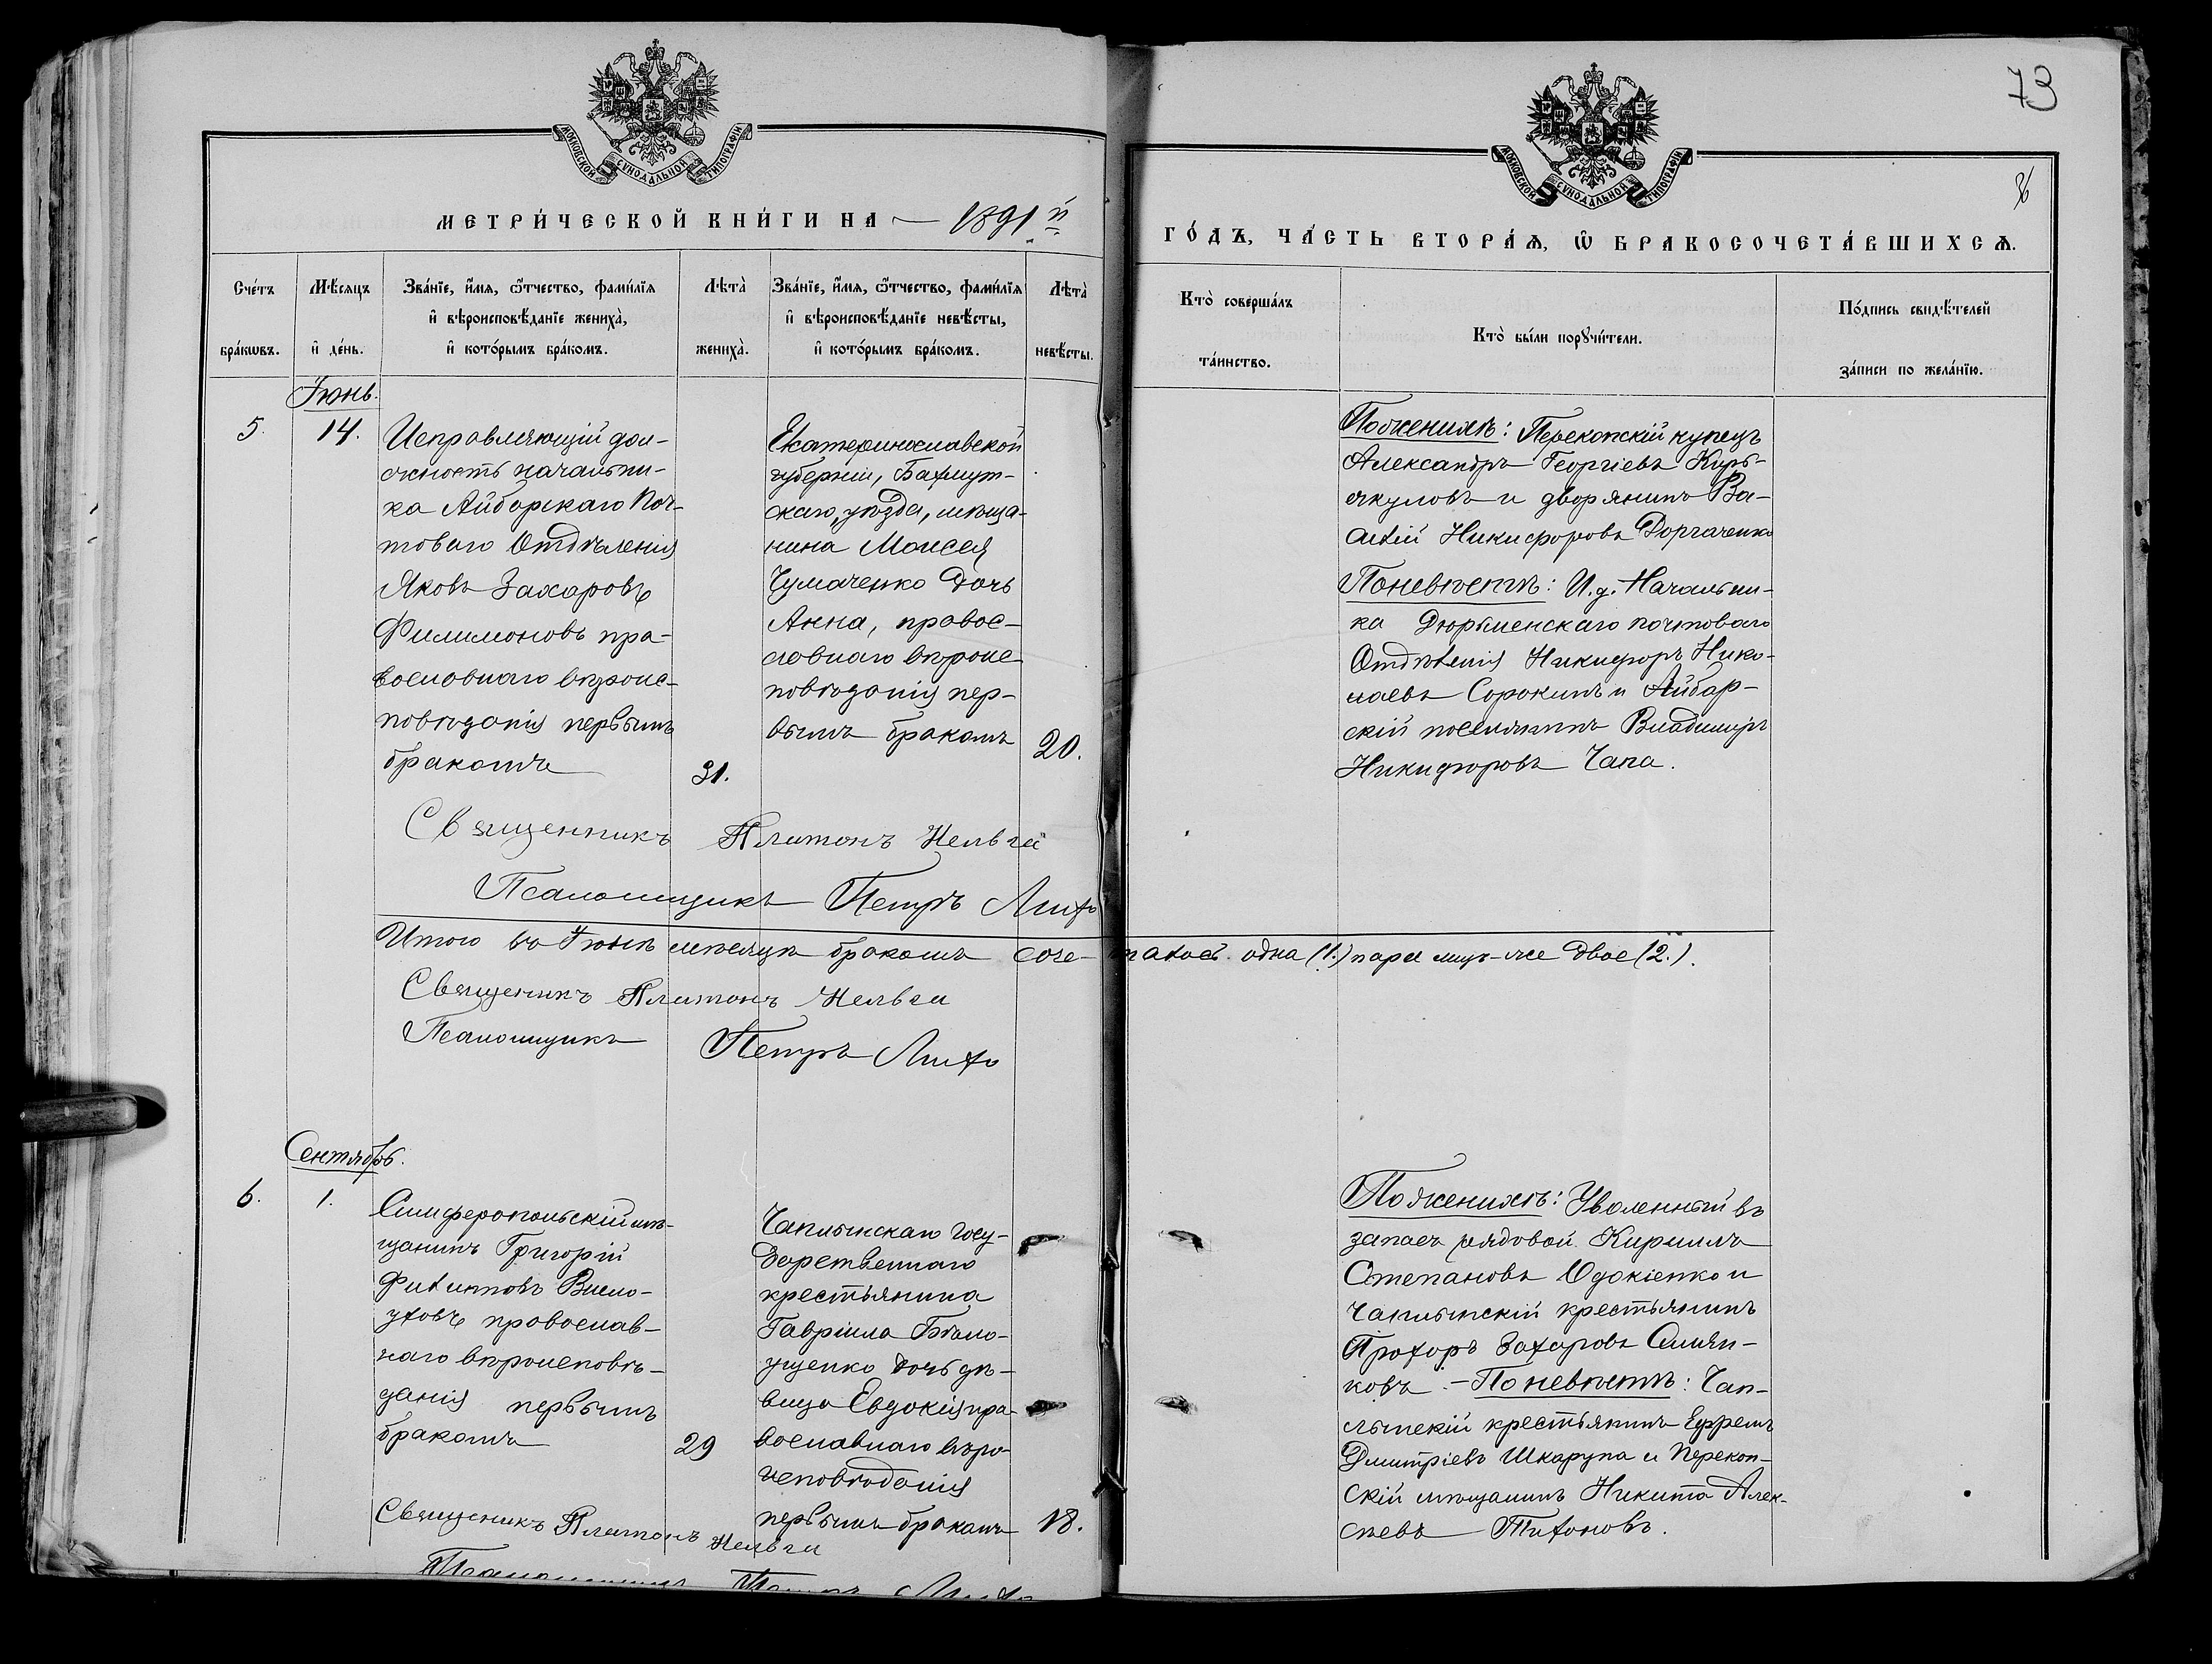 73
МОСКОВСКОЙ СУНОДАЛЬНОЙ ТИПОГРАФІИ
МОСКОВСКОЙ СУНОДАЛЬНОЙ ТИПОГРАФІИ
МЕТРИ́ЧЕСКОЙ КНИ́ГИ НА — 1891й
ГО́ДЪ, ЧА́СТЬ ВТОРА́Я, Ѡ БРАКОСОЧЕТА́ВШИХСЯ.
Сче́тъ бра́кωвъ.
Мѣ́сяцъ и҆ де́нь.
Зва́нїе, и҆́мя, ѻ҆́тчество, фами́лїя
и҆ вѣроисповѣ́данїе жениха̀,
и҆ кото́рымъ бра́комъ.
Лѣта̀ жениха̀.
Зва́нїе, и҆́мя, ѻ҆́тчество, фами́лїя
и҆ вѣроисповѣ́данїе невѣ́сты,
и҆ кото́рымъ бра́комъ.
Лѣта̀ невѣ́сты.
Кто̀ соверша́лъ
та́инство.
Кто̀ бы́ли порꙋчи́тели.
По́дпись свидѣ́телей
за́писи по жела́нїю.
Іюнь.
5.
14.
Исправляющій дол-
жность начальни-
ка Айбарскаго Поч-
товаго Отдѣленія
Яковъ Захаровъ
Филимоновъ пра-
вославнаго вѣроис-
повѣданія первымъ
бракомъ
31.
Екатеринославской
губерніи, Бахмут-
скаго уѣзда, мѣща-
нина Моисея
Чумаченко дочь
Анна, правос-
лавнаго вѣроис-
повѣданія пер-
вымъ бракомъ
20.
По женихѣ: Перекопскій купецъ
Александръ Георгіевъ Кирь-
якуловъ и дворянинъ Ва-
силій Никифоровъ Доргаченко
По невѣстѣ: И.д. Начальни-
ка Дюрьменскаго почтоваго
Отдѣленія Никифоръ Нико-
лаевъ Сорокинъ и Айбар-
скій поселянинъ Владиміръ
Никифоровъ Чапа.
Священникъ Платонъ
Псаломщикъ Петръ Лихо
Итого въ Іюнѣ мѣсяцѣ бракомъ соче-талось одна (1.) пара лицъ-же двое (2.).
Священикъ Платонъ
Псаломщикъ Петръ Лихо
Сентябрь.
6.
1.
Симферопольскій мѣ-
щанинъ Григорій
Филипповъ Висло-
уховъ православ-
наго вѣроисповѣ-
данія первымъ
бракомъ
29
Чаплынскаго Госу-
дарственнаго
крестьянина
Гавріила Бѣло-
ущенко дочь дѣ-
вица Евдокія пра-
вославнаго вѣро-
исповѣданія
первымъ бракомъ
18.
По женихѣ: Уволенный въ
запасъ рядовой Кириллъ
Степановъ Одокіенко и
Чаплынскій крестьянинъ
Прохоръ Захаровъ Семян-
ковъ. — По невѣстѣ: Чап-
лынскій крестьянинъ Ефремъ
Дмитріевъ Шкарупа и Перекоп-
скій мѣщанинъ Никита Алек-
сѣевъ Тихоновъ.
Священикъ Платонъ
Псаломщикъ Петръ Лихо